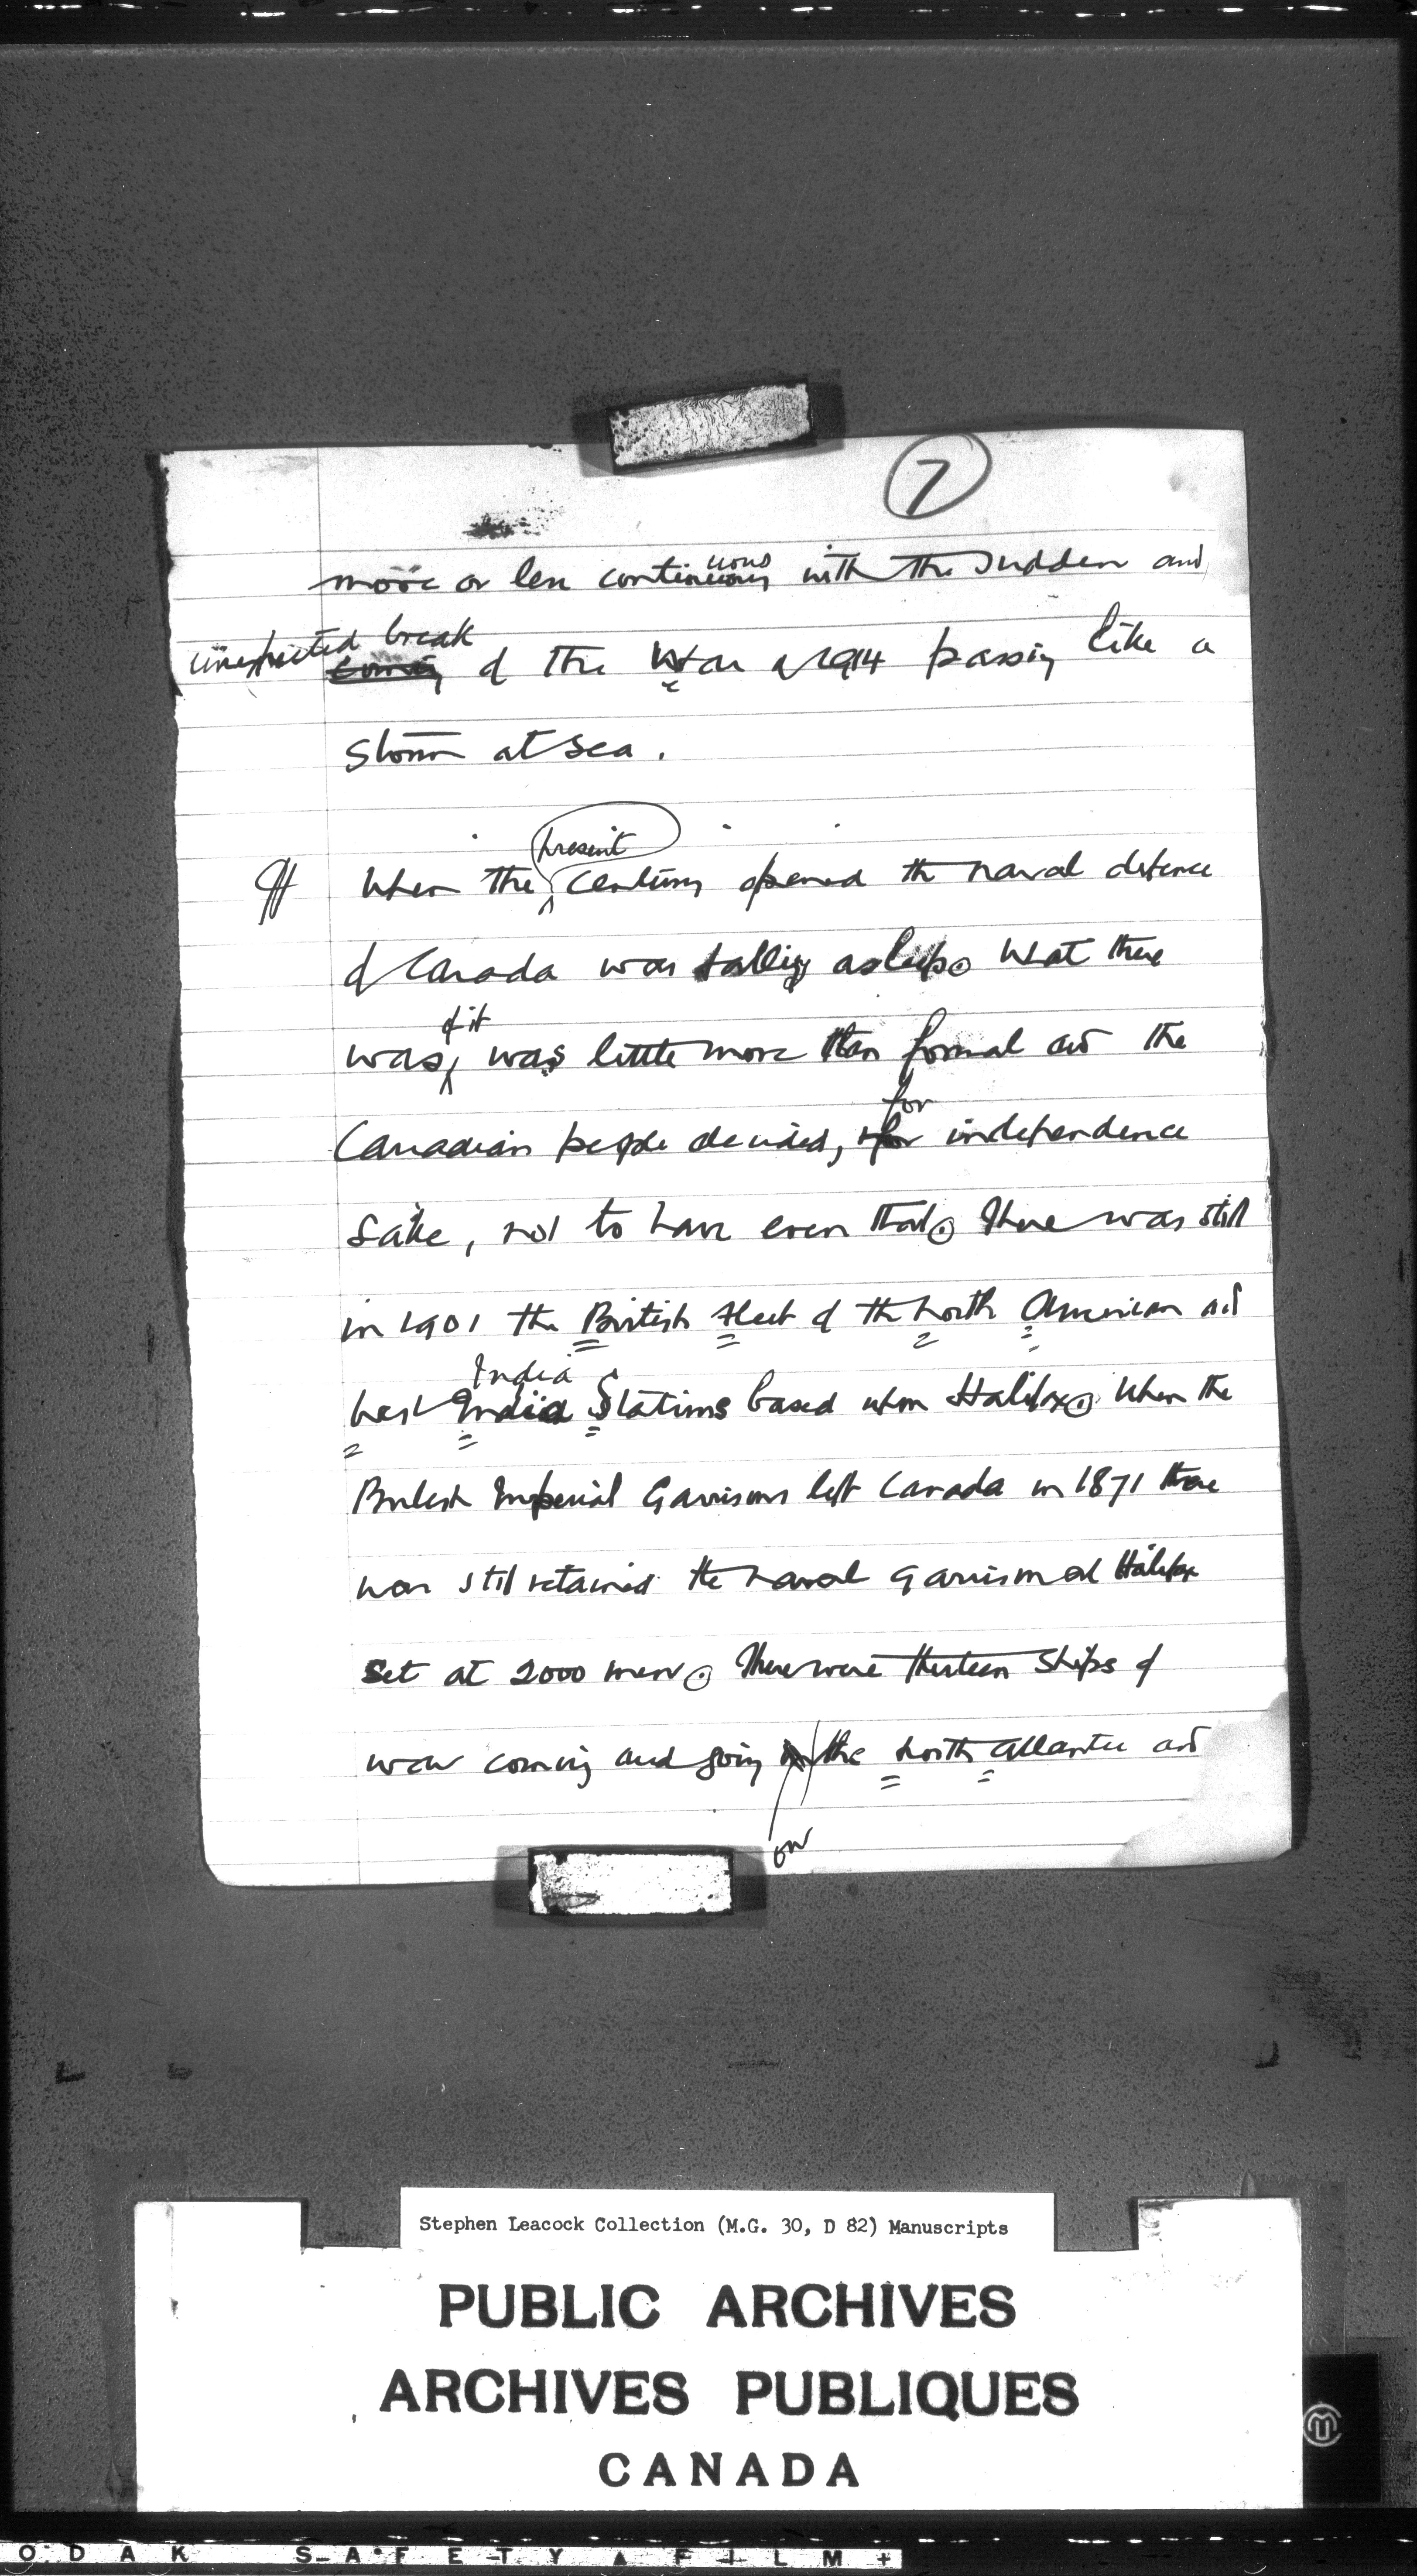 7
more or less continuous with the sudden and
unexpected break
coming of the War of 1914 passing like a
storm at sea.
When the present century opened the naval defence
of Canada was falling asleep. What there
was of it was little more than formal and the
for
Canadian people decided, for independence
sake, not to have even that. There was still
in 1901 the British Fleet of the North American and
India
West India Stations based upon Halifax. When the
British Imperial Garrisons left Canada in 1871 there
was still retained the naval garrison at Halifax
set at 2000 men. There were thirteen ships of
war coming and going the North Atlantic and
on
Stephen Leacock Collection (M.G. 30, D 82) Manuscripts
PUBLIC ARCHIVES
ARCHIVES PUBLIQUES
CANADA
ODAK SAFETY FILM